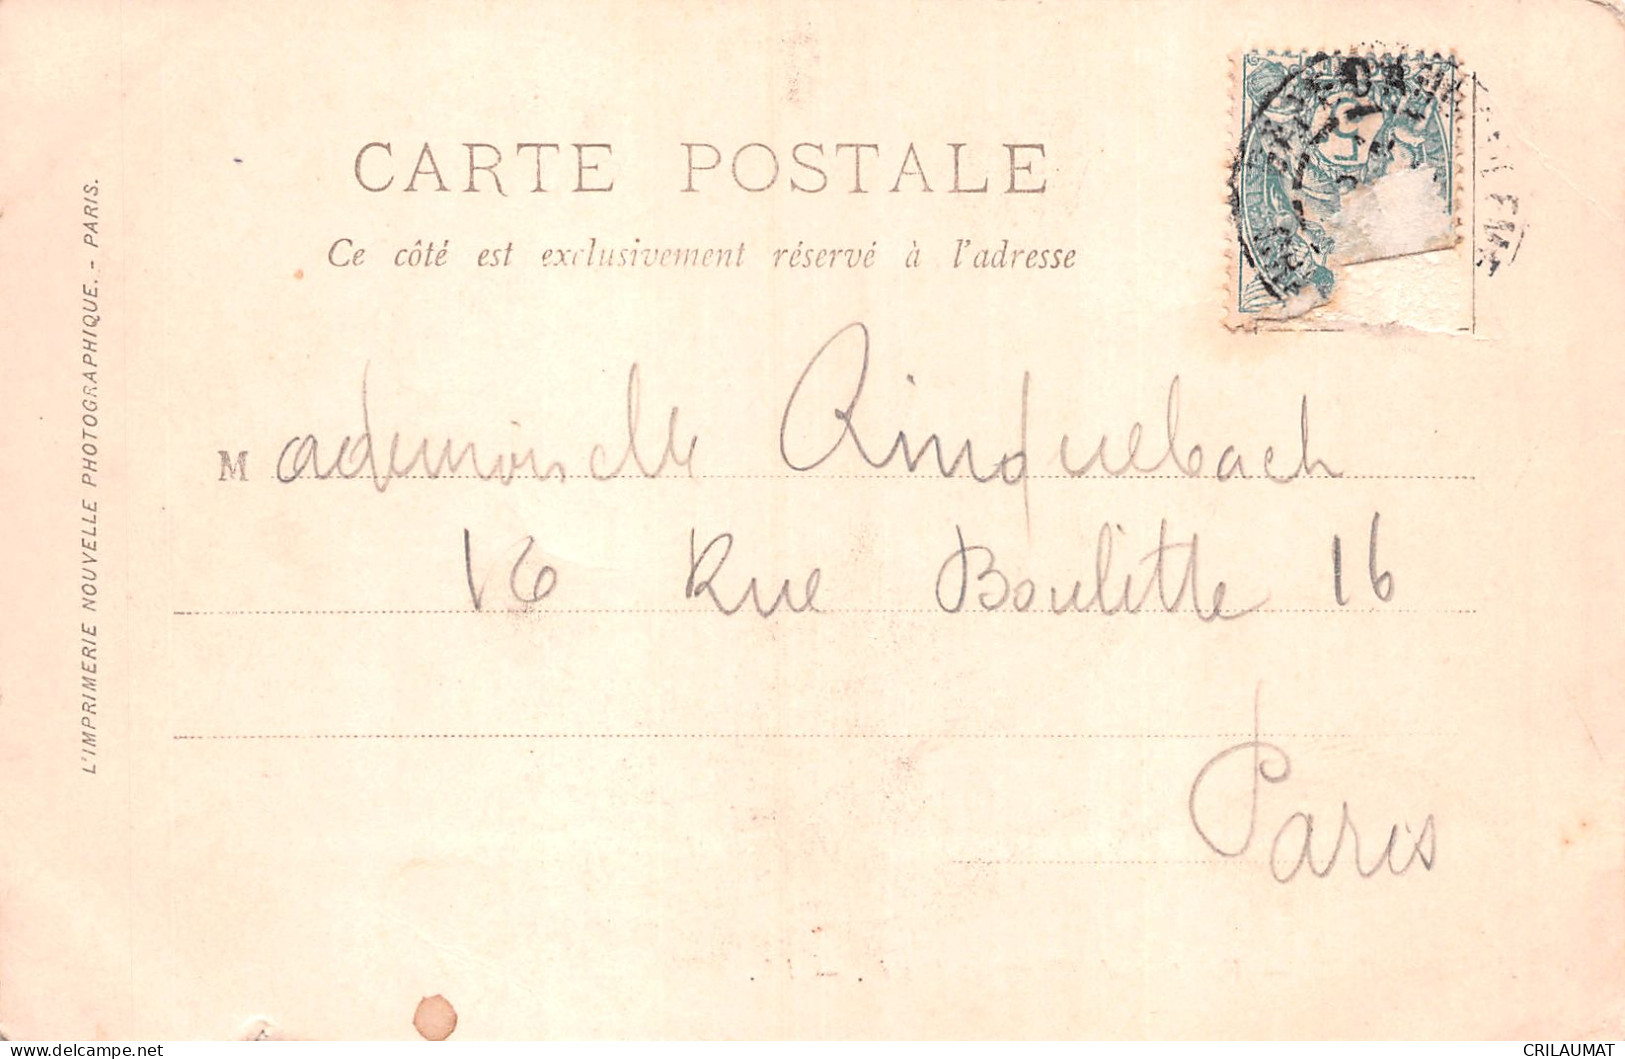 CARTE POSTALE
Ce côté est exclusivement réservé à l'adresse
L'IMPRIMERIE NOUVELLE PHOTOGRAPHIQUE. - PARIS.
Mademoiselle Rinquebach
16 Rue Boulitte 16
Paris
CRILAUMAT